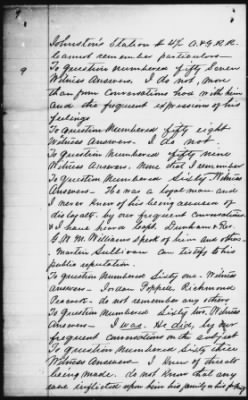 9
Johnston's Station # 4 1/2 A. & G. R.R.
Cannot remember particulars—
To Question numbered fifty seven
Witness Answers. I do not, more
than from conversations had with him
and the frequent expressions of his
feelings
To question Numbered fifty eight
Witness Answers. I do not.
To Question Numbered fifty nine
Witness Answers. None that I remember
To Question Numbered Sixty Witness
Answers— He was a loyal man and
I never knew of his being accused of
disloyalty. by our frequent conversations
& I have heard Capt. Dunham & Rev.
G. W. M. Williams speak of him and others.
Martin Sullivan can testify to his
public reputation
To question Numbered Sixty one. Witness
Answers— Poppell, Richmond
do not remember any others
To Question Numbered Sixty two. Witness
Answers— I was. He did, by our
frequent conversations on the subject
To question Numbered Sixty three
Witness Answers— I knew of threats
being made. do not know that any
were inflicted upon him his family or his property